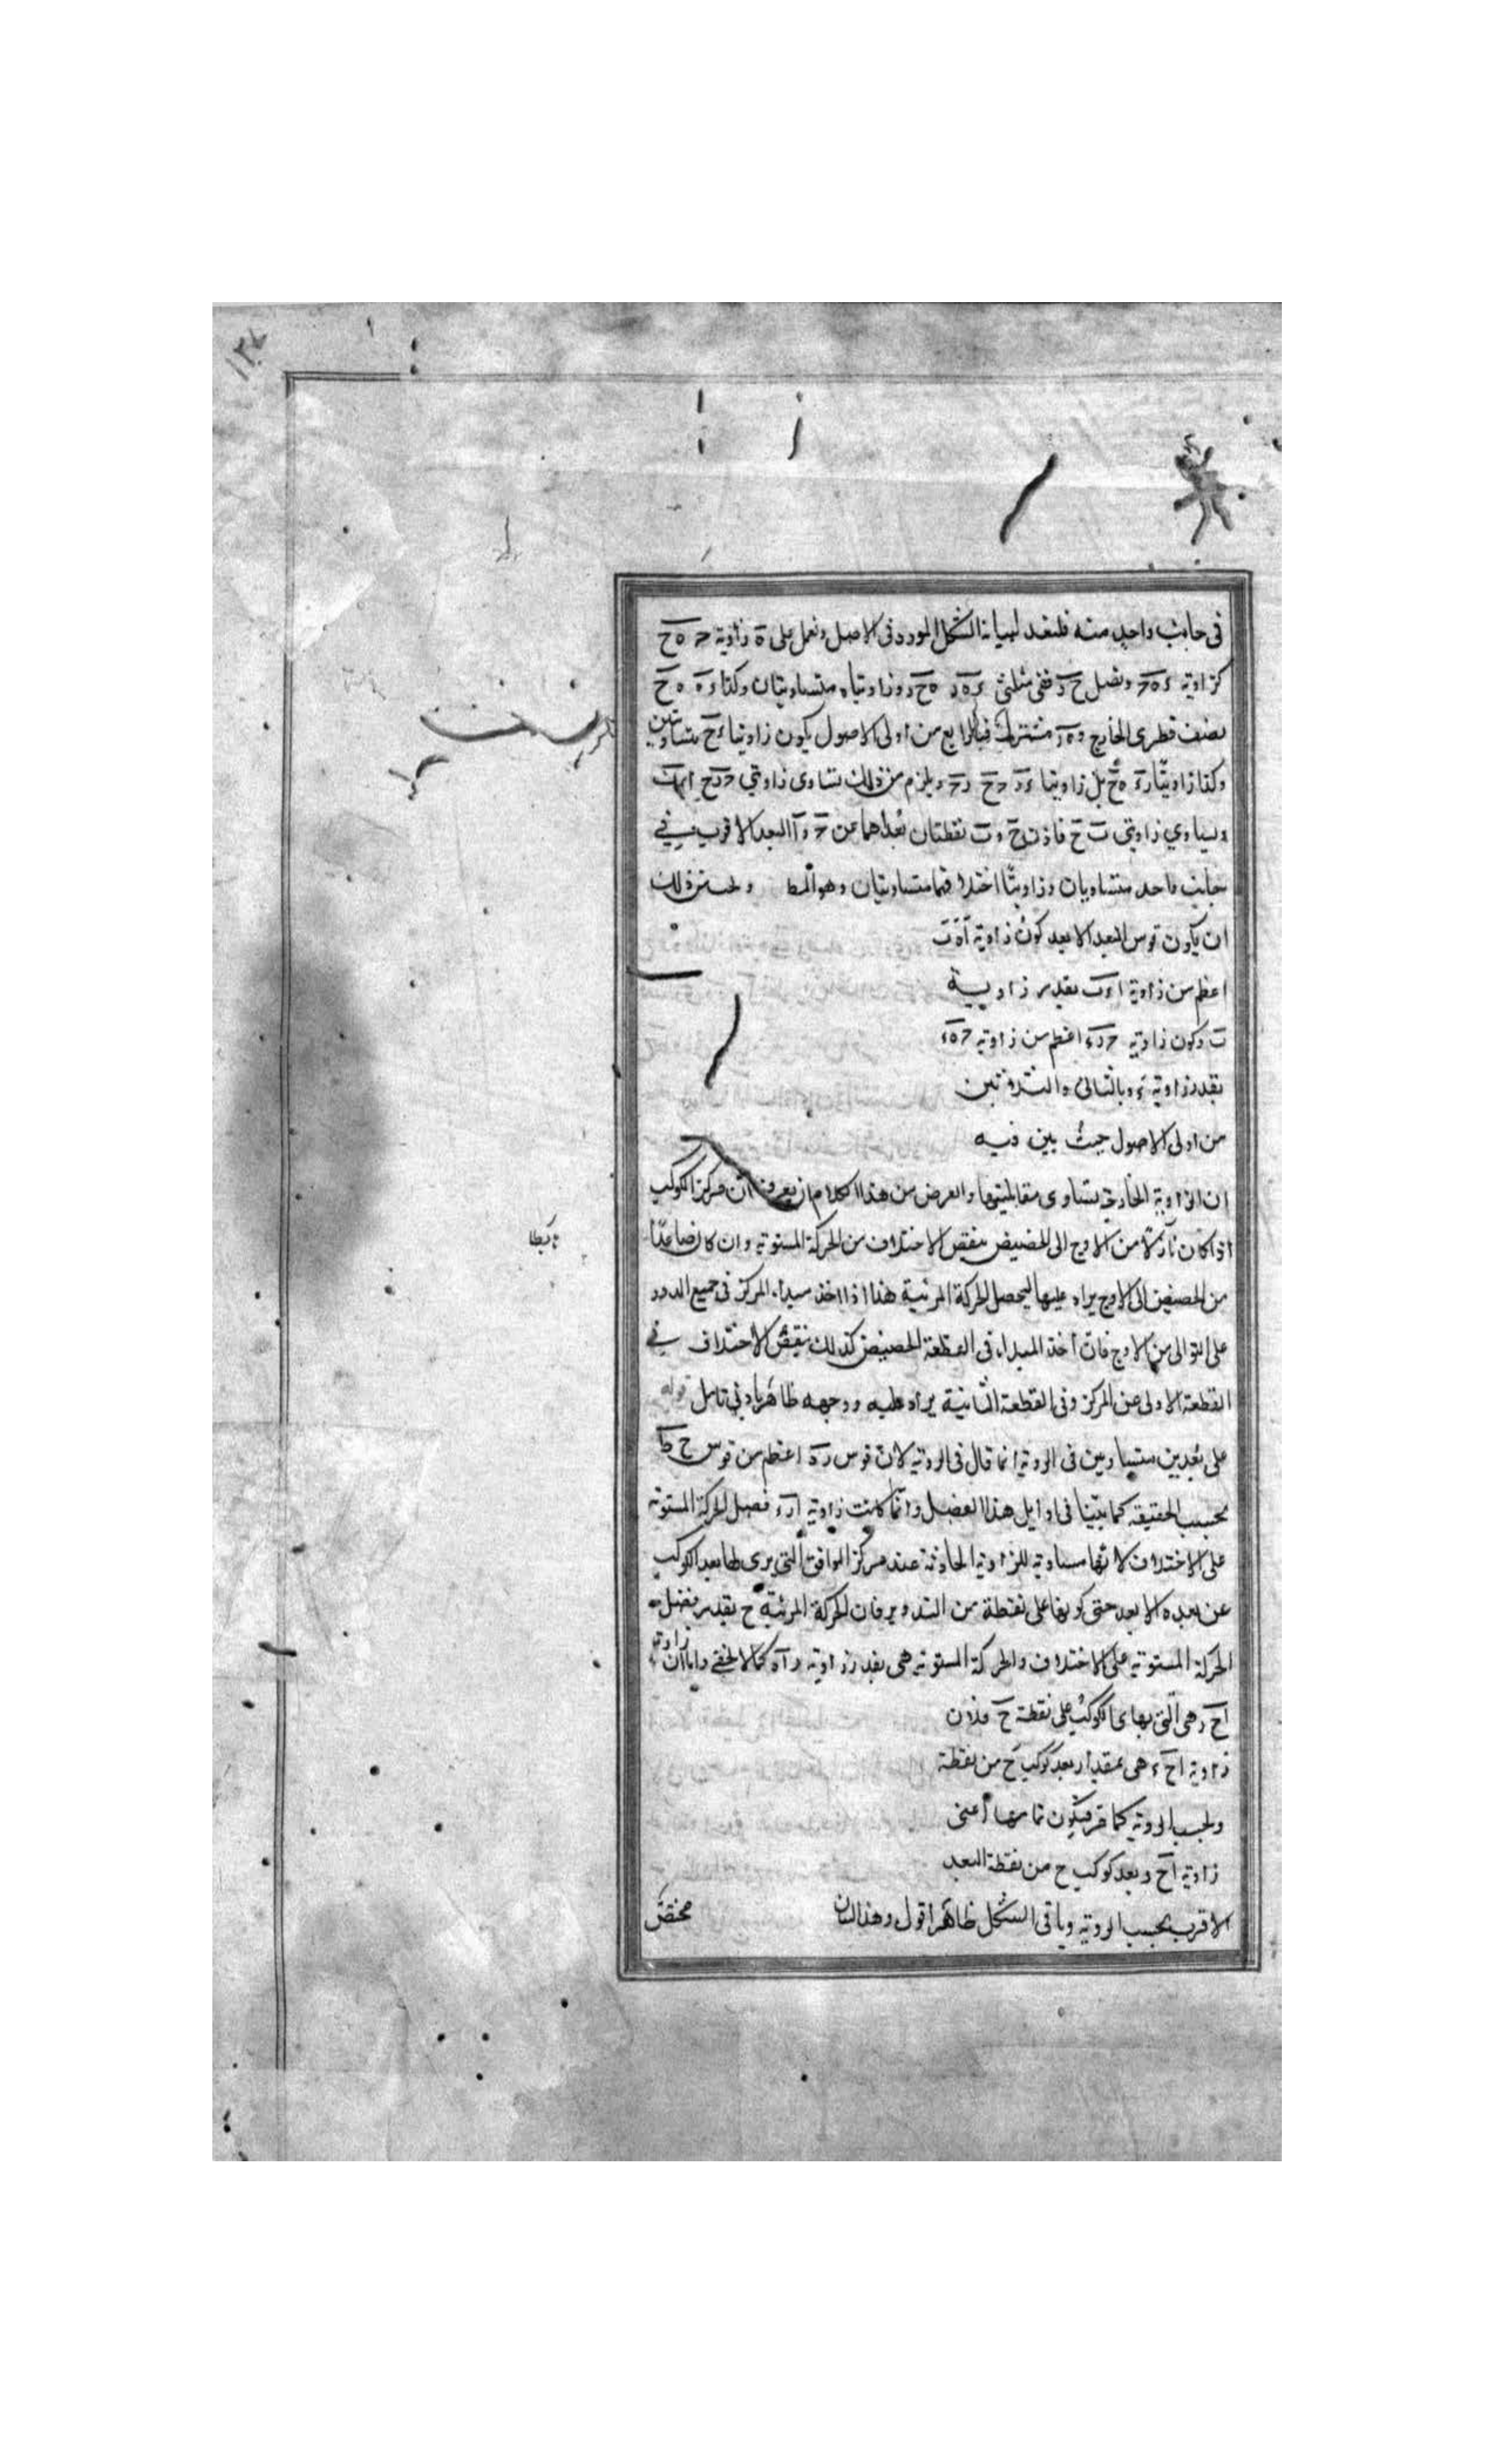 ١٣٤
فى جانب واحد منه فلنعد لبيانه الشكل المورد فى الاصل ونعمل على ه زاوية حـ ه ح
كزاوية ء ه حـ ونصل ح ر ففى مثلثى ء ه ر ه ح ر وزاويتاه متساويتان وكذا ء ه ه ح
نصف قطرى الخارج و ه ر مشترك فبالرابع من اولى الاصول يكون زاويتا ء ح متساويتين
وكذا زاويتا ر ء ه ح بل زاويتا ء ر حـ ح ر حـ ويلزم من ذلك تساوى زاويتى
وتساوي زاويتى ب ح فاذن ح و ب نقطتان بعداهما عن حـ و آ البعد الاقرب فى
جانب واحد متساويان وزاويتا اختلافهما متساويتان وهو المط ذلك
ان يكون قوس البعد الابعد كون زاوية ا ه ب
اعظم من زاوية ا ر ب بقدر زاوية
ب وكون زاوية حـ ر ء اعظم من زاوية حـ ه ء
بقدر زاوية ء وبالثانى والثلاثين
من اولى الاصول حيث بين فيه
ان الزاوية الخارجة تساوى مقابلتيها والغرض من هذا الكلام ان يعرف ان مركز الكوكب
اذا كان نازلا من الاوج الى الحضيض ينقص الاختلاف من الحركة المستوية وان كان صاعدا
هابطا
من الحضيض الى الاوج يزاد عليها ليحصل الحركة المرئية هذا اذا اخذ مبداء المركز فى جميع الدور
على التوالى من الاوج فان أخذ المبداء فى القطعة الحضيض كذلك ينقص الاختلاف فى
القطعة الاولى عن المركز وفى القطعة الثانية يزاد عليه ووجهه ظاهر بادنى تامل قوله
على بعدين متساويين فى الروية انما قال فى الروية لان قوس ر ه اعظم من قوس ح ط
بحسب الحقيقة كما بينا فى اوايل هذا الفصل وانما كانت زاوية ا ر ء فضل الحركة المستوية
على الاختلاف لانها مساوية للزاوية الحادثة عند مركز الموافق التى يرى بها بعد الكوكب
عن بعده الابعد حتى كونها على نقطة من التدوير فان الحركة المرئية ح بقدر فضل
الحركة المستوية على الاختلاف والحركة المستوية هى بقدر زاوية ر ا ه كما لا يخفى واما ان زاوية
ا ح ر هى التى بها يرى الكوكب على نقطة ح فلان
زاوية ا ح ء هى بمقدار بعد كوكب ح من نقطة
بحسب الروية كما مر فيكون تمامها أعنى
زاوية ا ح ر بعد كوكب ح من نقطة البعد
الاقرب بحسب الروية وباقى الشكل ظاهر اقول وهذا البيان مختص